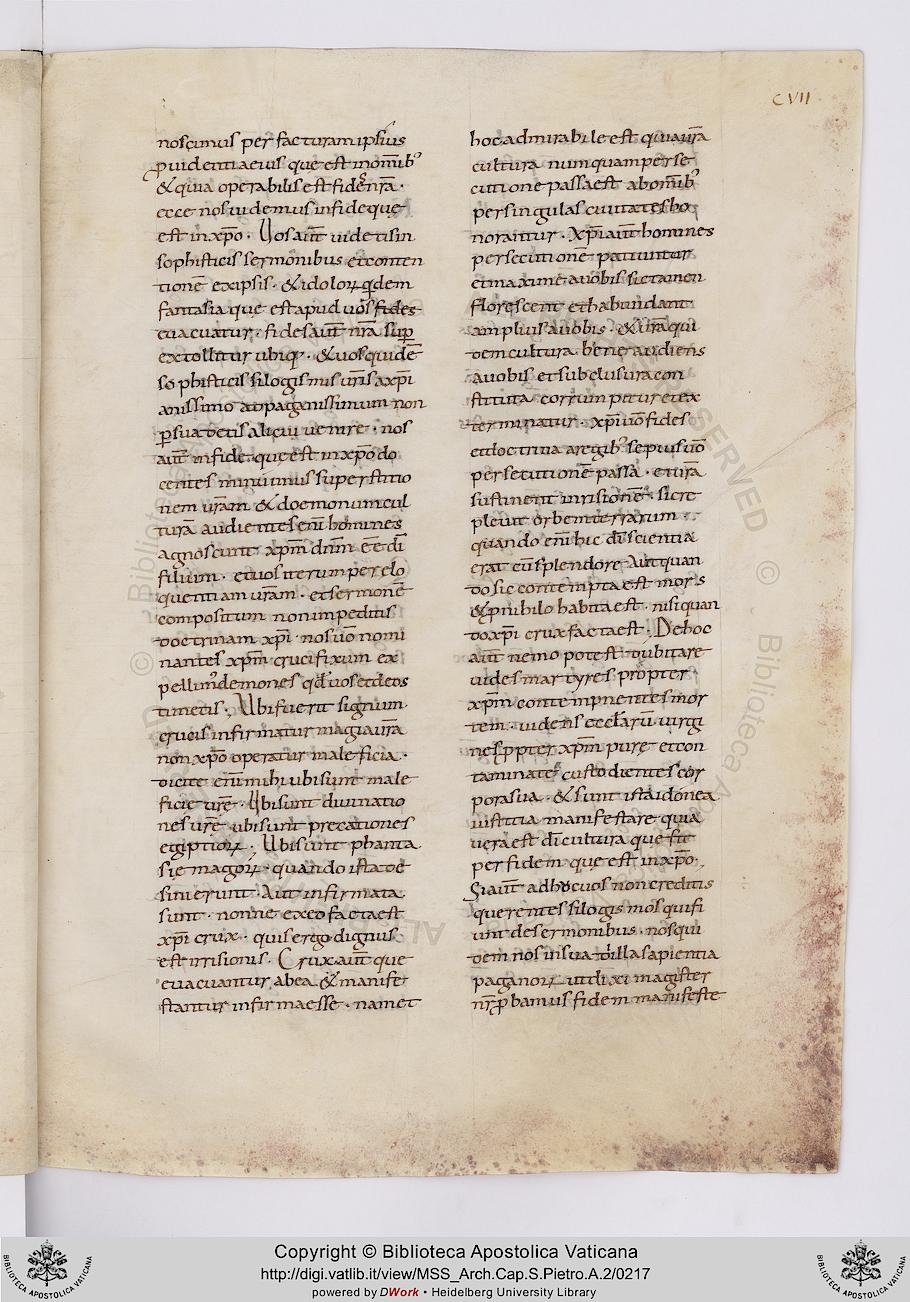 CVII
noscimus per facturam ipsius
puidentiae eius que est in om̅ib'
& quia operabilis est fides n̅ra ·
ecce nos uidemus in fide que
est in xp̅o · Uos aut̅ uidetis in
sophisticis sermonibus et conten
tione̅ ex ipsis · & idoloꝝ q̅dem
fantasia que est apud uos fides
euacuatur · fides aut̅ n̅ra sup̅
extollitur ubiq; · & uos quide̅
sophisticis silogismis ur̅is a xp̅i
anissimo ad paganissimum non
ꝑsuadetis alicui uenire · nos
aut̅ in fide que est in xp̅o do
centes minuimus superstitio
nem ur̅am & doemonum cul
tura̅ audientes eni̅ homines
agnoscunt xp̅m dn̅m e̅e di̅
filium · et uos iterum per elo
quentiam uram · et sermone̅
compositum non impeditis
doctrinam xp̅i · nos uo̅ nomi
nantes xp̅m crucifixum ex
pellim' demones qd̅ uos et deos
timetis · Ubi fuerit signum
crucis infirmatur magia ur̅a
non xp̅o operatur maleficia ·
dicite eni̅ mihi ubi sunt male
ficie ur̅e · Ubi sunt diuinatio
nes ur̅e ubi sunt precationes
egiptioꝝ · Ubi sunt phanta
sie magoꝝ · quando ista de
sinierunt · Aut infirmata
sunt · nonne ex eo facta est
xp̅i crux · quis ergo dignus
est irrisionis · Crux aut̅ que
euacuantur ab ea & manife
stantur infirma esse · nam et
hoc admirabile est quia ur̅a
cultura numquam perse
cutione passa est ab om̅ib'
per singulas ciuitates ho
norantur · Xp̅i aut̅ homines
persecutione̅ patiuntur
et maxime a uobis sic tamen
florescent et habundant
amplius a uobis · & ura qui
dem cultura bene audiens
a uobis et sub clusura con
stituta corrumpitur et ex
terminatur · xp̅i uo̅ fides
et doctrina a regib' sepius uo̅
persecutione̅ passa · et ur̅a
sustinent irrisione̅ · sic re
pleuit orbem terrarum ·
quando eni̅ hic di̅ scientia
erat cu̅ splendore · Aut quan
do sic contempta est mors
& p nihilo habita est · nisi quan
do xp̅i crux facta est · De hoc
aut̅ nemo potest dubitare
uides martyres propter
xp̅m contempnentes mor
tem · uidens eccl̅aru̅ uirgi
nes ppter xp̅m pure et con
taminate custodientes cor
pora sua · & sunt ista idonea
iustitia manifestare quia
uera est di̅ cultura que fit
per fidem que est in xp̅o ·
Si aut̅ adhuc uos non creditis
querentes silogismos qui fi
unt de sermonibus · nos qui
dem nos in suadibilla sapientia
paganoꝝ ut dixi magister
nr̅ pbamus fidem manifeste
Copyright © Biblioteca Apostolica Vaticana
http://digi.vatlib.it/view/MSS_Arch.Cap.S.Pietro.A.2/0217
powered by DWork • Heidelberg University Library
BIBLIOTECA APOSTOLICA VATICANA
BIBLIOTECA APOSTOLICA VATICANA